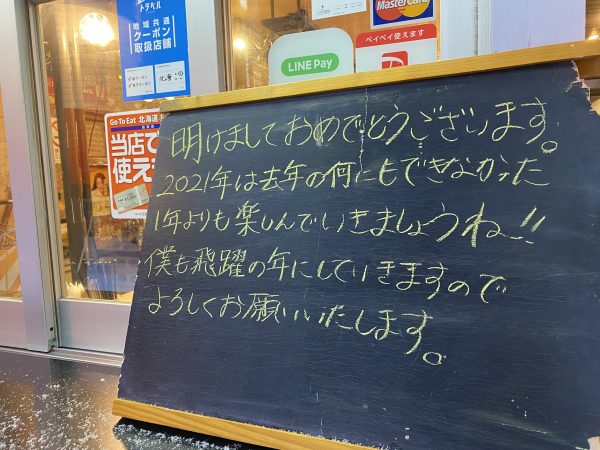 トラベル
地域共通
クーポン
取扱店舗
MasterCard
LINE Pay
ペイペイ使えます
Go To Eat 北海道
当店で
使え
明けましておめでとうございます。
2021年は去年の何にもできなかった
1年よりも楽しんでいきましょうね!!
僕も飛躍の年にしていきますので
よろしくお願いいたします。